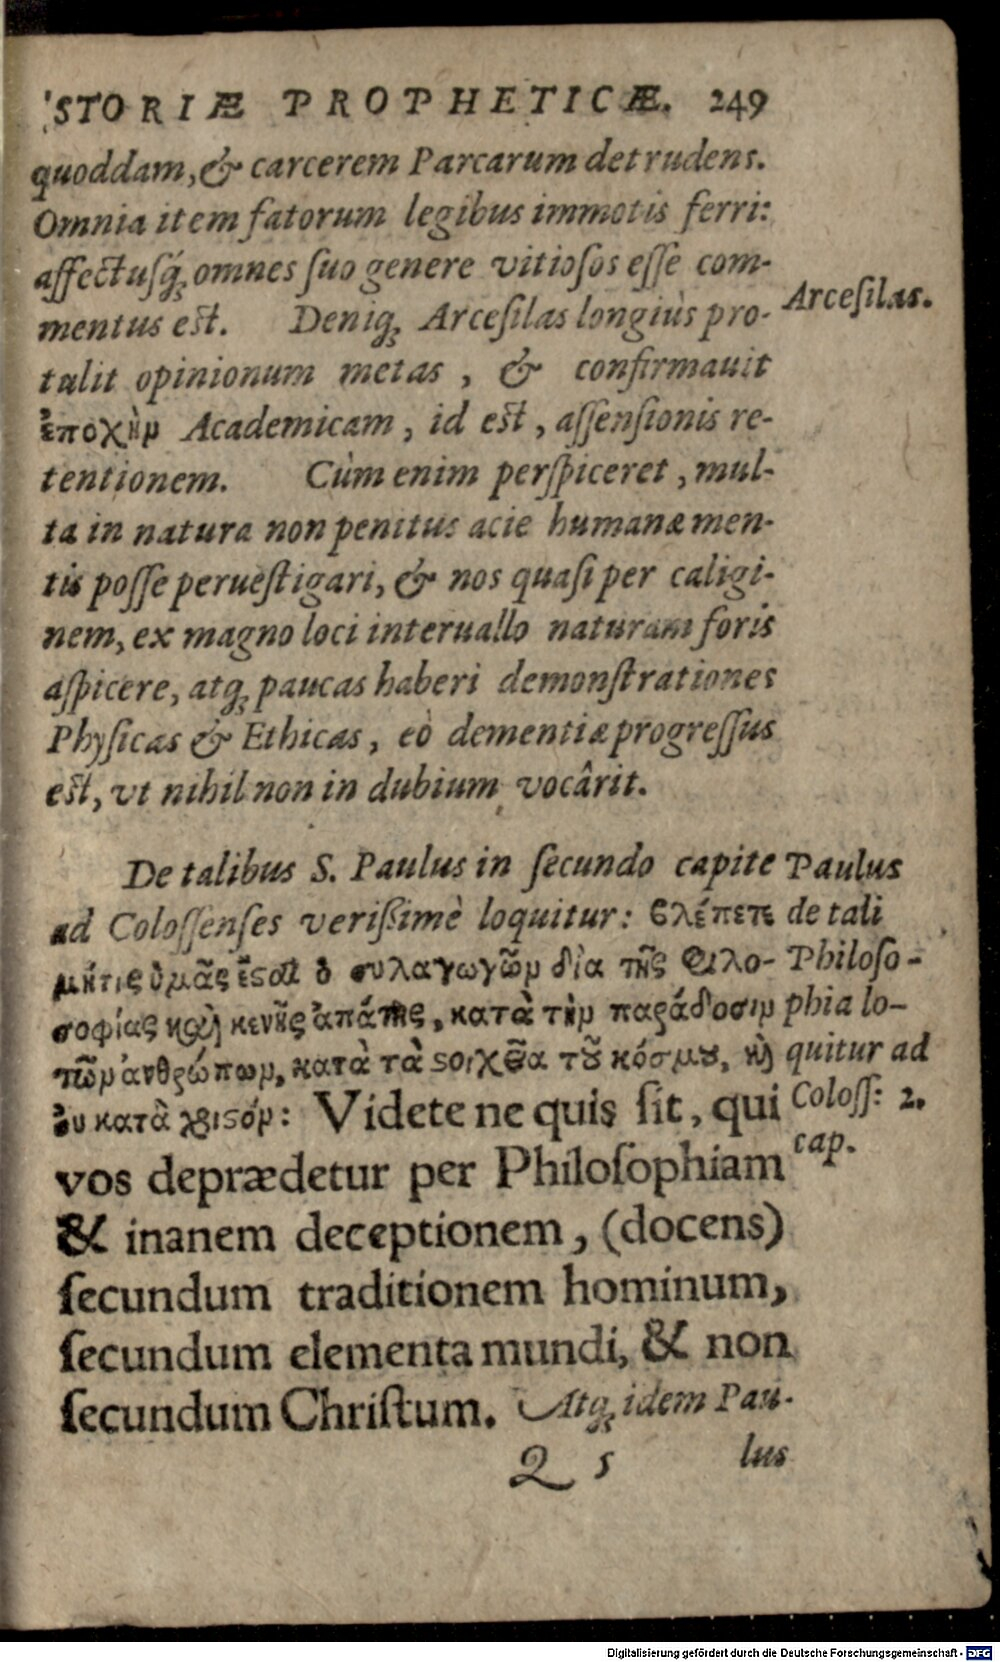 STORIÆ PROPHETICÆ. 249
quoddam, & carcerem Parcarum detrudens.
Omnia item fatorum legibus immotis ferri:
affectusq́; omnes suo genere vitiosos esse com-
mentus est. Deniq; Arcesilas longiùs pro-
tulit opinionum metas, & confirmauit
ἐποχὴν Academicam, id est, assensionis re-
tentionem. Cùm enim perspiceret, mul-
ta in natura non penitus acie humanæ men-
tis posse peruestigari, & nos quasi per caligi-
nem, ex magno loci interuallo naturam foris
aspicere, atq; paucas haberi demonstrationes
Physicas & Ethicas, eò dementiæ progressus
est, vt nihil non in dubium vocârit.
Arcesilas.
De talibus S. Paulus in secundo capite
ad Colossenses verißimè loquitur: βλέπετε
μήτις ὑμᾶς ἔςαι ὁ συλαγωγῶν δία τῆς φιλο-
σοφίας καὶ κενῆς ἀπάτης, κατὰ τὴν παράδοσιν
τῶν ἀνθρώπων, κατὰ τὰ ςοιχεῖα τοῦ κόσμου, καὶ
ὀυ κατὰ χριςόν: Videte ne quis sit, qui
vos deprædetur per Philosophiam
& inanem deceptionem, (docens)
secundum traditionem hominum,
secundum elementa mundi, & non
secundum Christum. Atq; idem Pau-
Paulus
de tali
Philoso-
phia lo-
quitur ad
Coloss: 2.
cap.
Q 5 lus
Digitalisierung gefördert durch die Deutsche Forschungsgemeinschaft - DFG